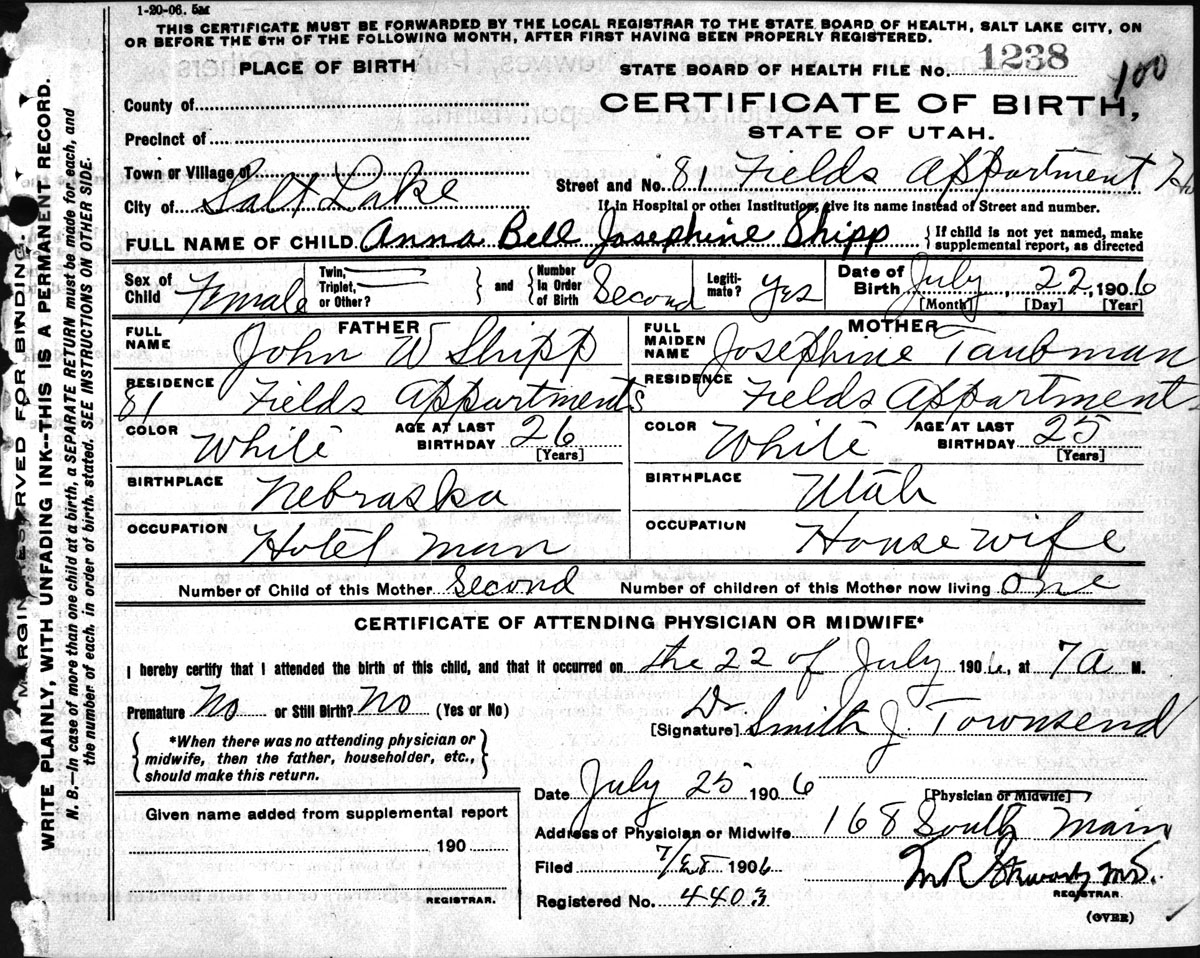 1-20-06. 5M
THIS CERTIFICATE MUST BE FORWARDED BY THE LOCAL REGISTRAR TO THE STATE BOARD OF HEALTH, SALT LAKE CITY, ON
OR BEFORE THE 5TH OF THE FOLLOWING MONTH, AFTER FIRST HAVING BEEN PROPERLY REGISTERED.
PLACE OF BIRTH
STATE BOARD OF HEALTH FILE NO. 1238
100
County of
CERTIFICATE OF BIRTH,
Precinct of
STATE OF UTAH.
Town or Village of
Street and No. 81 Fields Appartment
City of Salt Lake
If in Hospital or other Institution, give its name instead of Street and number.
FULL NAME OF CHILD Anna Bell Josephine Shipp {If child is not yet named, make supplemental report, as directed
Sex of Child Female Twin, Triplet, or Other? } and { Number in Order of Birth Second Legitimate? Yes Date of Birth July, 22, 1906
[Month] [Day] [Year]
FATHER MOTHER
FULL NAME John W Shipp FULL MAIDEN NAME Josephine Taubman
RESIDENCE 81 Fields Appartments RESIDENCE Fields Appartments
COLOR White AGE AT LAST BIRTHDAY 26 [Years] COLOR White AGE AT LAST BIRTHDAY 25 [Years]
BIRTHPLACE Nebraska BIRTHPLACE Utah
OCCUPATION Hotel man OCCUPATION House wife
Number of Child of this Mother Second Number of children of this Mother now living one
CERTIFICATE OF ATTENDING PHYSICIAN OR MIDWIFE*
I hereby certify that I attended the birth of this child, and that it occurred on the 22 of July 1906, at 7 A M.
Premature No or Still Birth? No (Yes or No)
[Signature] Dr Smith J. Townsend
{*When there was no attending physician or
midwife, then the father, householder, etc.,
should make this return.}
Date July 25 1906 [Physician or Midwife]
Given name added from supplemental report
190
REGISTRAR.
Address of Physician or Midwife 168 South Main
Filed 1906
REGISTRAR.
Registered No. 4403
(OVER)
MARGIN RESERVED FOR BINDING.
WRITE PLAINLY, WITH UNFADING INK--THIS IS A PERMANENT RECORD.
N. B.—In case of more than one child at a birth, a SEPARATE RETURN must be made for each, and
the number of each, in order of birth, stated. SEE INSTRUCTIONS ON OTHER SIDE.